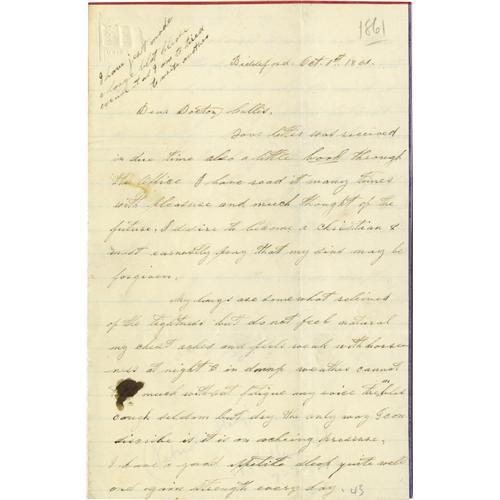 I have just made
a large blot please
excuse it as I am to tired
to write another
1861
Biddeford Oct. 1st 1861.
Dear Doctor Cullis.
Your letter was received
in due time also a little book through
the office I have read it many times
with pleasure and much thought of the
future. I desire to become a christian &
most earnestly pray that my sins may be
forgiven.
My lungs are somewhat relieved
of the tightness but do not feel natural
my chest aches and feels weak with hoarse-
ness at night & in damp weather cannot
much without fatigue my voice trembles
cough seldom but dry the only way I can
discribe is it is an acheing pressure.
I have a good appetite sleep quite well
and gain strength every day.